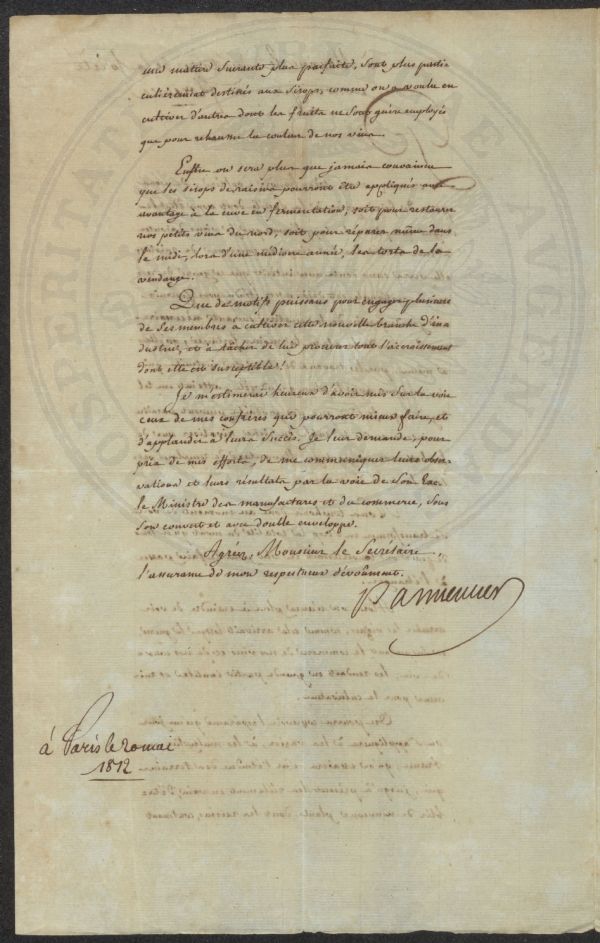 une matiere sucrante plus parfaite, sont plus parti-
culiérement destinés aux sirops, comme on a voulu en
cultiver d'autres dont les fruits ne sont guère employés
que pour rehausser la couleur de nos vins.
Enfin on sera plus que jamais convaincu
que les sirops de raisins pourront être appliqués avec
avantage à la cuve en fermentation, soit pour restaurer
nos petits vins du nord, soit pour réparer même dans
le midi, lors d'une médiocre année, les torts de la
vendange.
Que de motifs puissans pour engager plusieurs
de ses membres à cultiver cette nouvelle branche d'in-
dustrie, et à tâcher de lui procurer tout l'accroissement
dont elle est susceptible!
Je m'estimerai heureux d'avoir mis sur la voie
ceux de mes confrères qui pourront mieux faire, et
d'applaudir à leurs succès. Je leur demande, pour
prix de mes efforts, de me communiquer leurs obser-
vations et leurs résultats par la voie de son Exc.
le Ministre des manufactures et du commerce, sous
son couvert et avec double enveloppe.
Agréez, Monsieur le Secrétaire,
l'assurance de mon respectueux dévoûment.
Parmentier
à Paris le 20 mai
1812